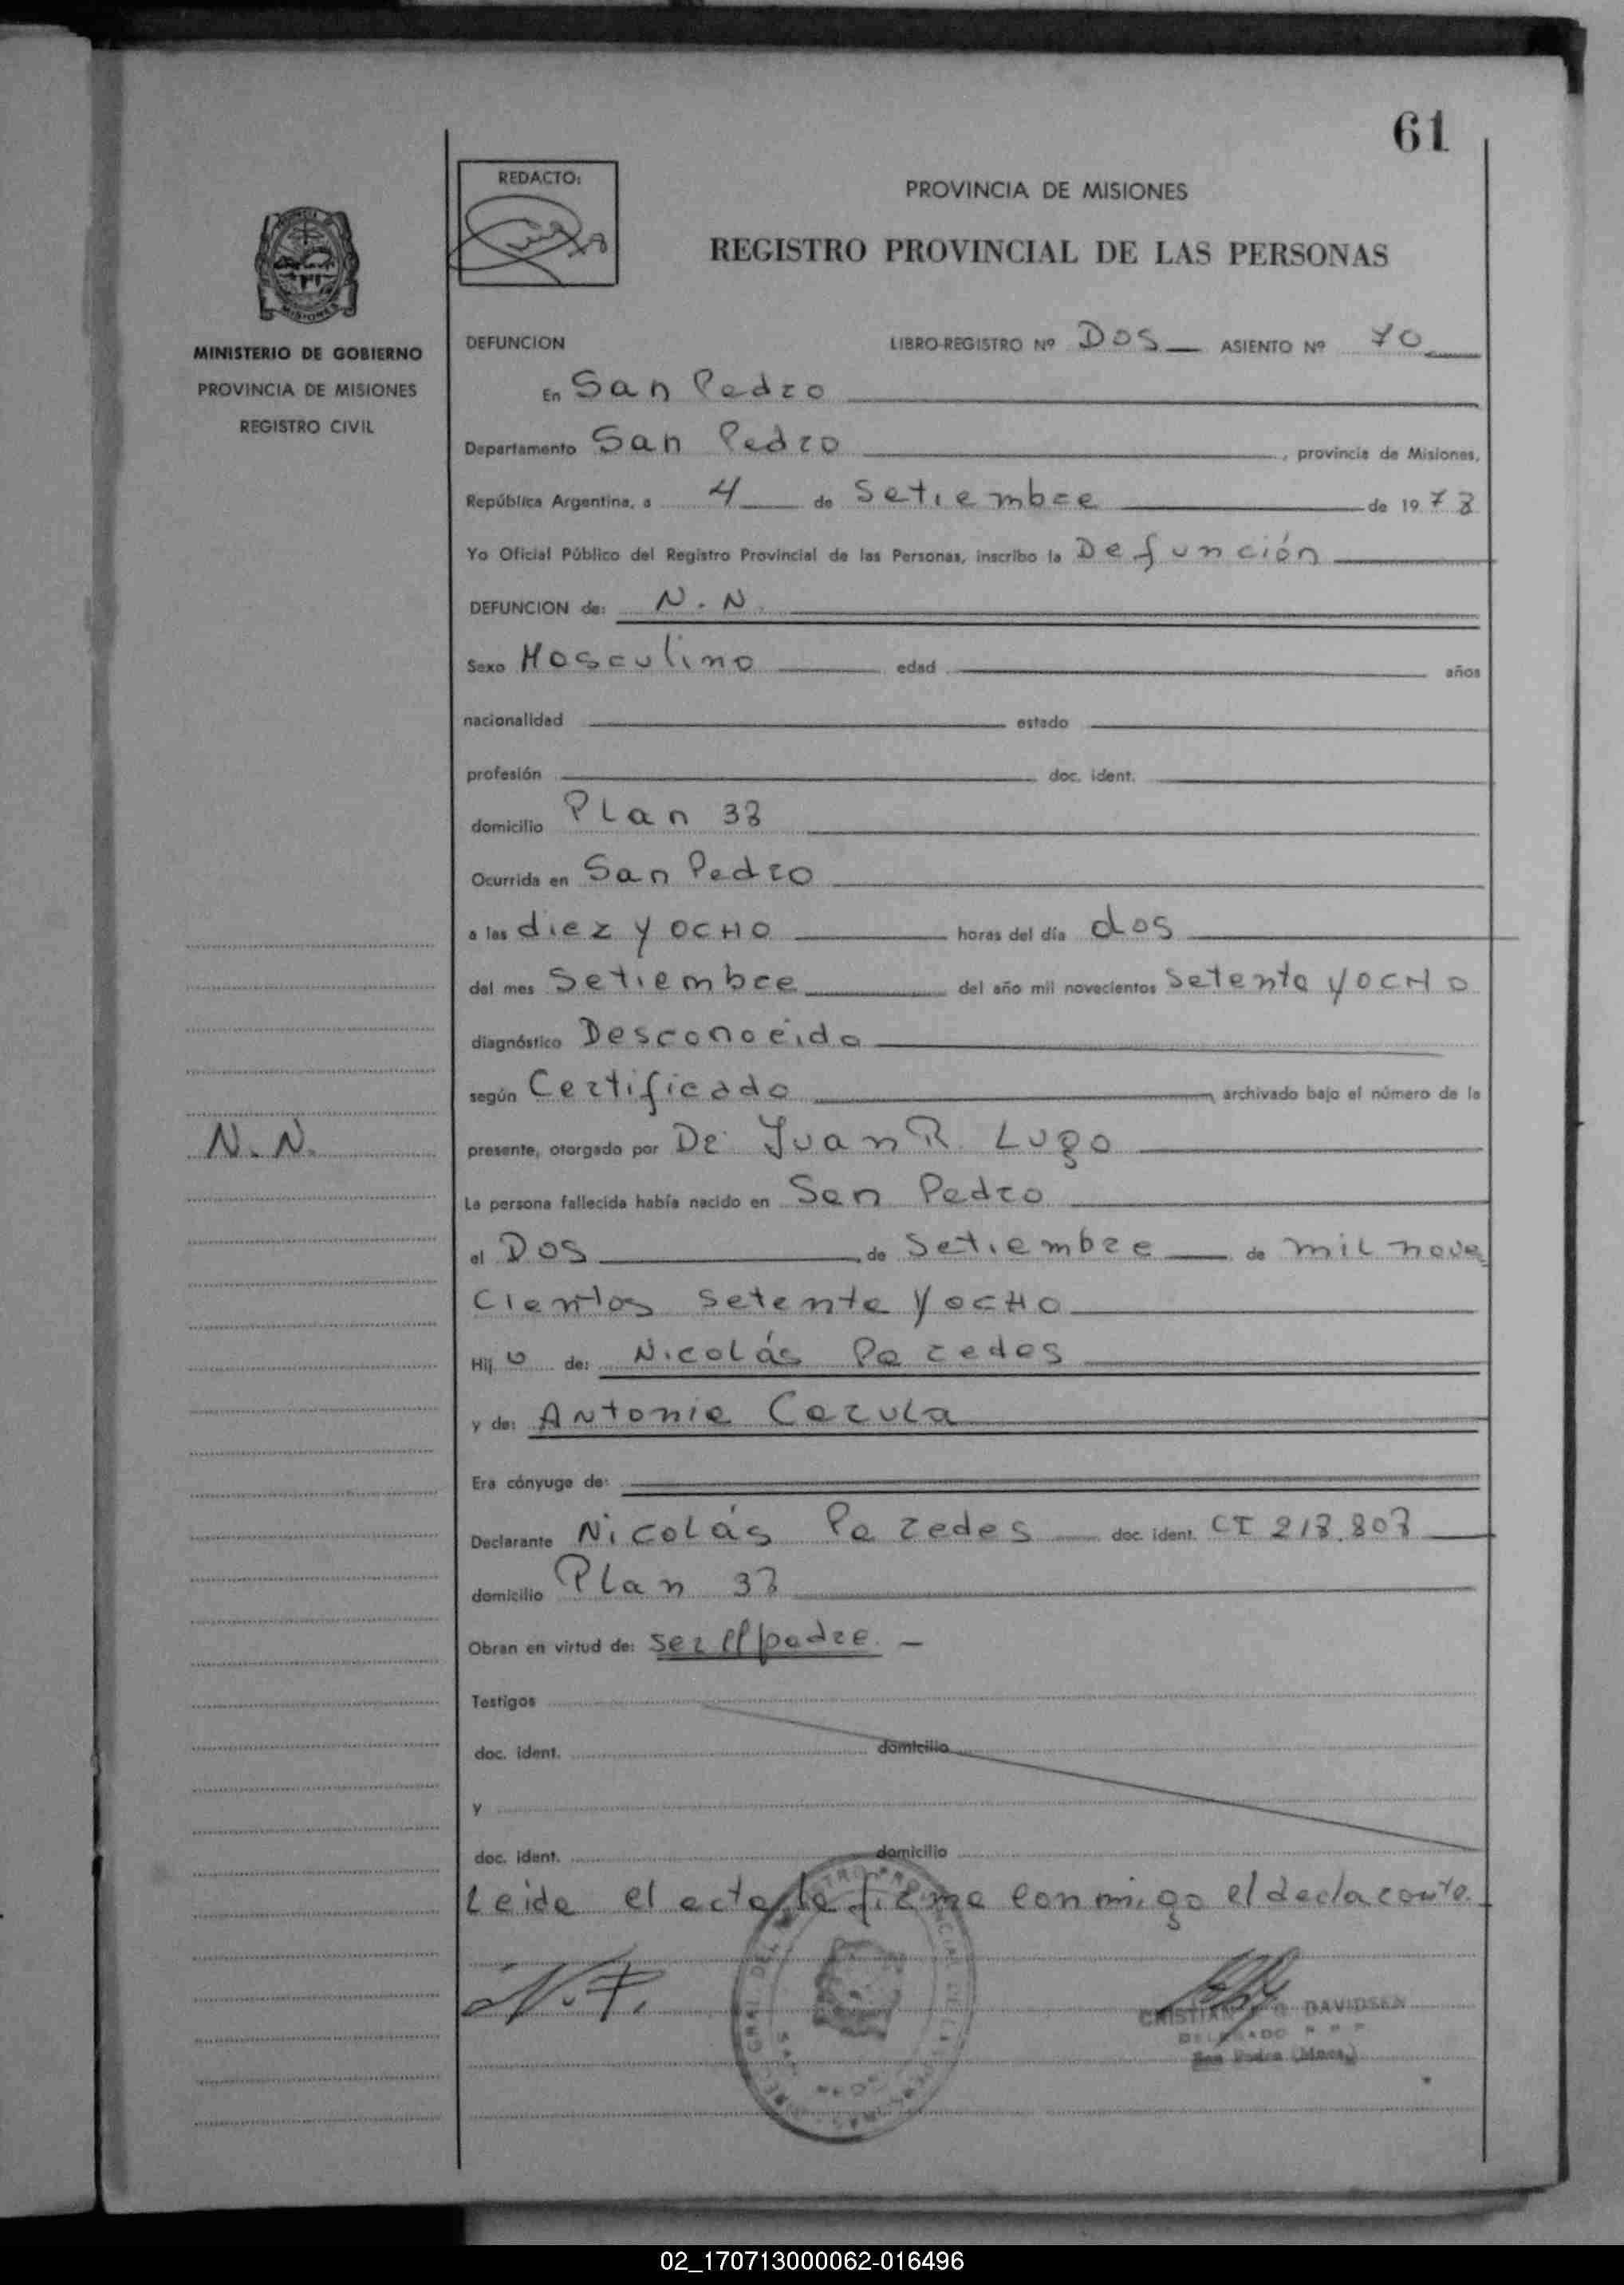 61
REDACTO:
PROVINCIA DE MISIONES
REGISTRO PROVINCIAL DE LAS PERSONAS
MINISTERIO DE GOBIERNO
PROVINCIA DE MISIONES
REGISTRO CIVIL
DEFUNCION LIBRO-REGISTRO Nº Dos ASIENTO Nº 70
En San Pedro
Departamento San Pedro, provincia de Misiones,
República Argentina, a 4 de Setiembre de 1978
Yo Oficial Público del Registro Provincial de las Personas, inscribo la Defunción
DEFUNCION de: N. N.
Sexo Masculino edad años
nacionalidad estado
profesión doc. ident.
domicilio Plan 38
Ocurrida en San Pedro
a las diez y ocho horas del día dos
del mes Setiembre del año mil novecientos Setenta y ocho
diagnóstico Desconocido
según Certificado, archivado bajo el número de la
N. N.
presente, otorgado por Dr Juan R. Lugo
La persona fallecida había nacido en San Pedro
el Dos de Setiembre de mil nove
cientos setenta y ocho
Hij o de: Nicolás Paredes
y de: Antonia Carula
Era cónyuge de:
Declarante Nicolás Paredes doc. ident. CI 218.808
domicilio Plan 38
Obran en virtud de: ser el padre. -
Testigos
doc. ident. domicilio
y
doc. ident. domicilio
Leida el acta la firma conmigo el declarante.
N. P.
CRISTIAN DAVIDSEN
DELEGADO R P P
San Pedro (Mnes.)
02_170713000062-016496